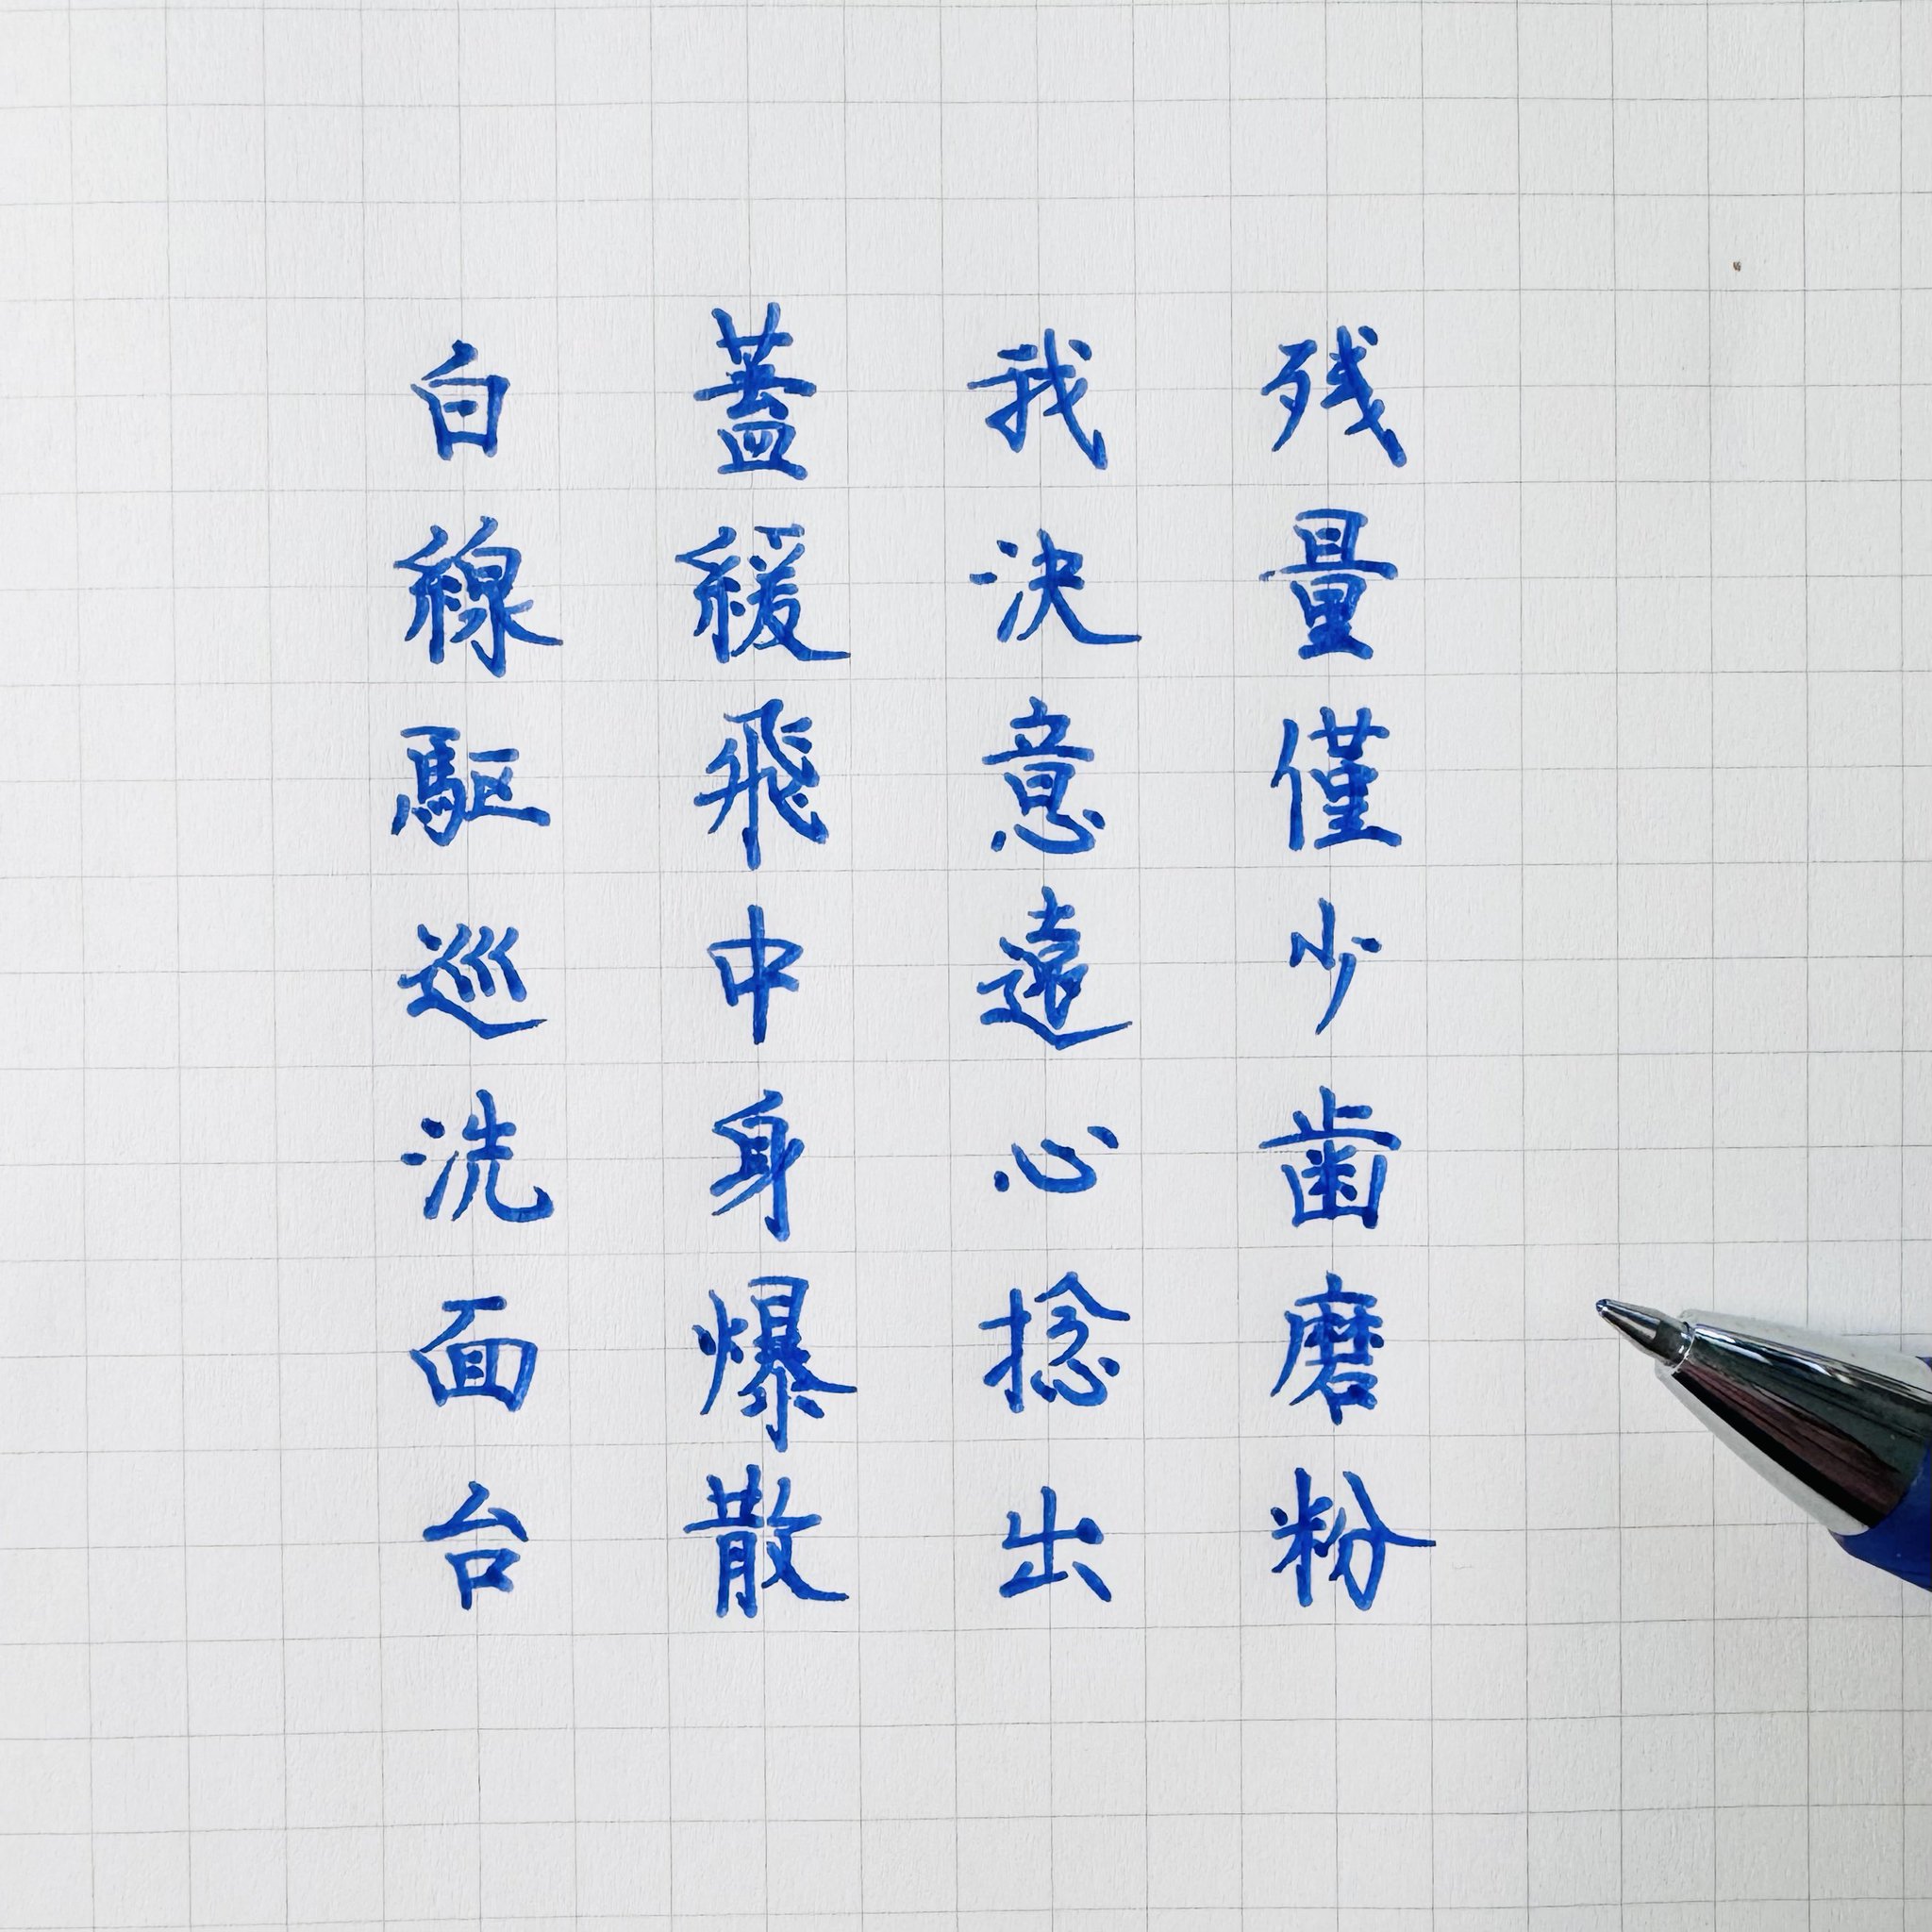 残量僅少歯磨粉
我決意遠心捻出
蓋緩飛中身爆散
白線駆巡洗面台